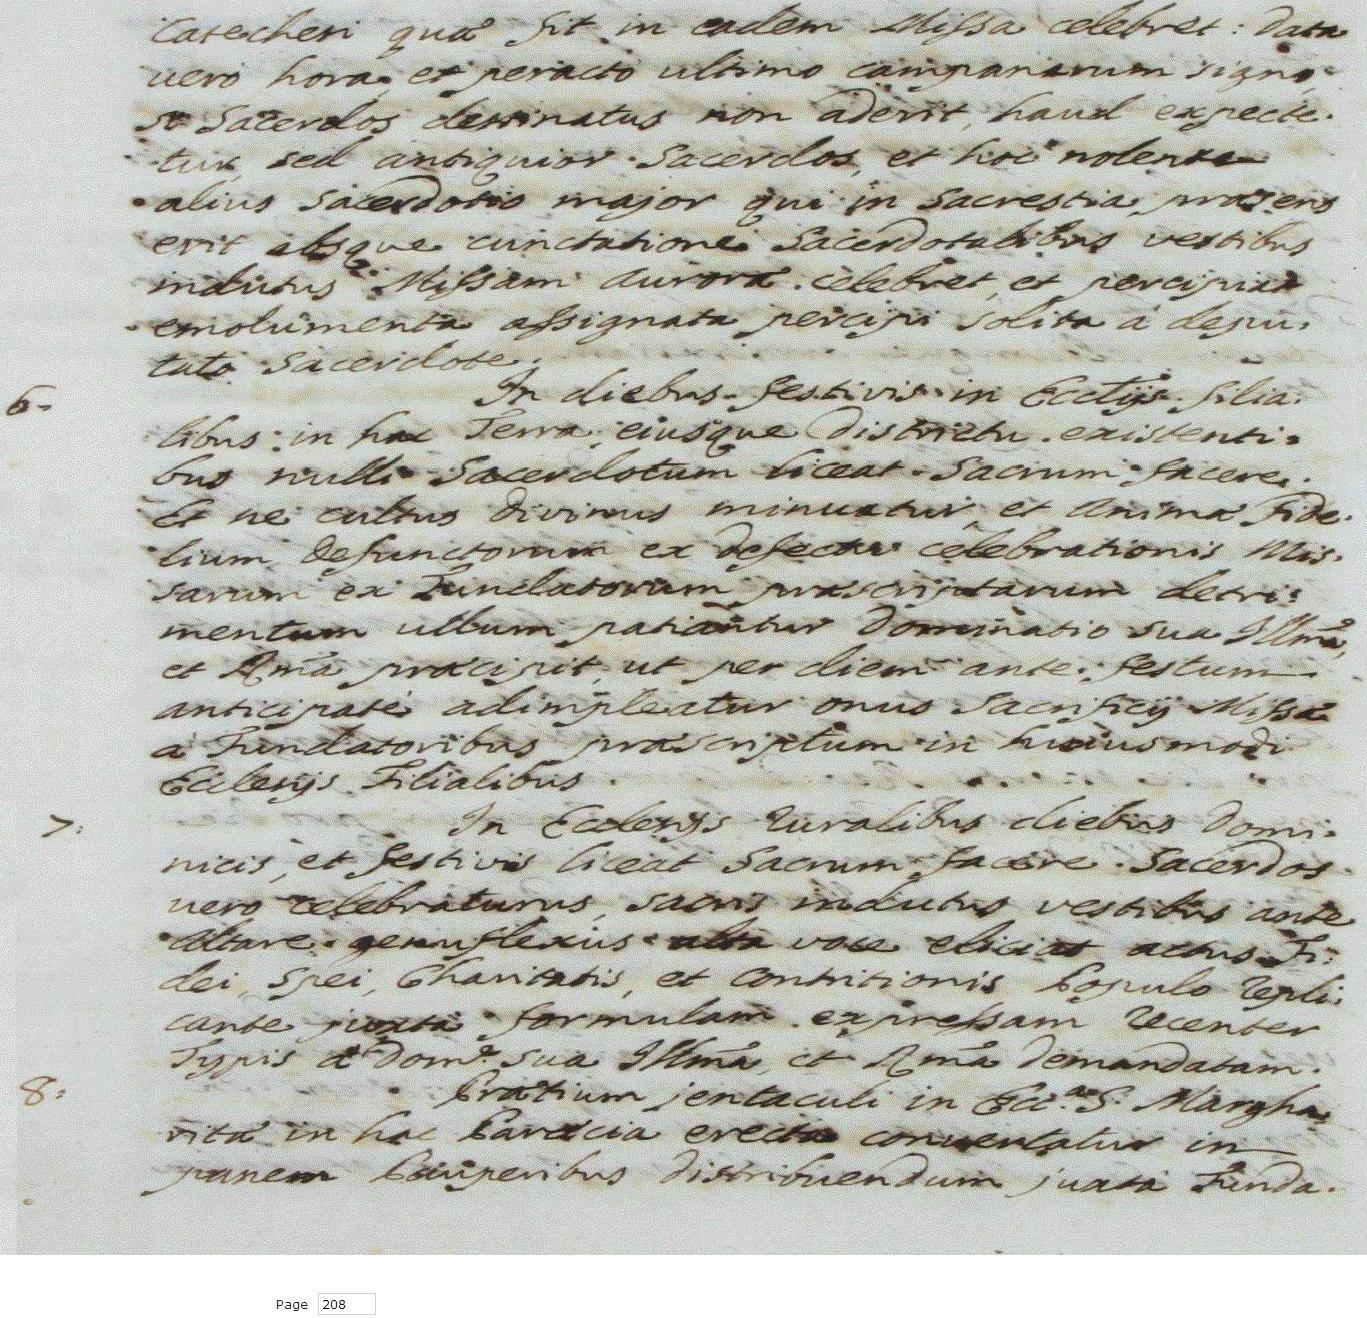 Catechesi quæ fit in eadem Missa celebret: Data
uero hora, et peracto ultimo campanarum signo,
si Sacerdos destinatus non aderit, haud expecte-
tur, sed antiquior Sacerdos, et hoc nolente
alius Sacerdotio major qui in Sacrestia præsens
erit absque cunctatione Sacerdotalibus vestibus
indutus Missam Auroræ celebret, et percipiat
emolumenta assignata percipi solita à depu-
tato Sacerdote.
6. In diebus festivis in Ecclijs filia-
libus in hac Terra, eiusque Districtu existenti-
bus nulli Sacerdotum liceat Sacrum facere.
Et ne cultus divinus minuatur, et Animæ Fide-
lium Defunctorum ex defectu celebrationis Mis-
sarum ex Fundatorum præscriptarum detri-
mentum ullum patiantur Dominatio sua Illma,
et Rma præcipit, ut per diem ante festum
anticipatè adimpleatur onus Sacrificij Missæ
à Fundatoribus præscriptum in huiusmodi
Ecclesijs Filialibus.
7: In Ecclesijs Ruralibus diebus Domi-
nicis, et festivis liceat Sacrum facere. Sacerdos
uero celebraturus, sacris indutus vestibus ante
Altare genuflexus alta voce eliciat actus Fi-
dei, Spei, Charitatis, et Contritionis Populo repli-
cante juxta formulam expressam recenter
Typis à Dom.e sua Illma, et Rma demandatam.
8: Prætium jentaculi in Eccl.a S. Margha-
ritæ in hac Parœcia erecta conuertatur in
panem Pauperibus distribuendum juxta Funda-
Page 208